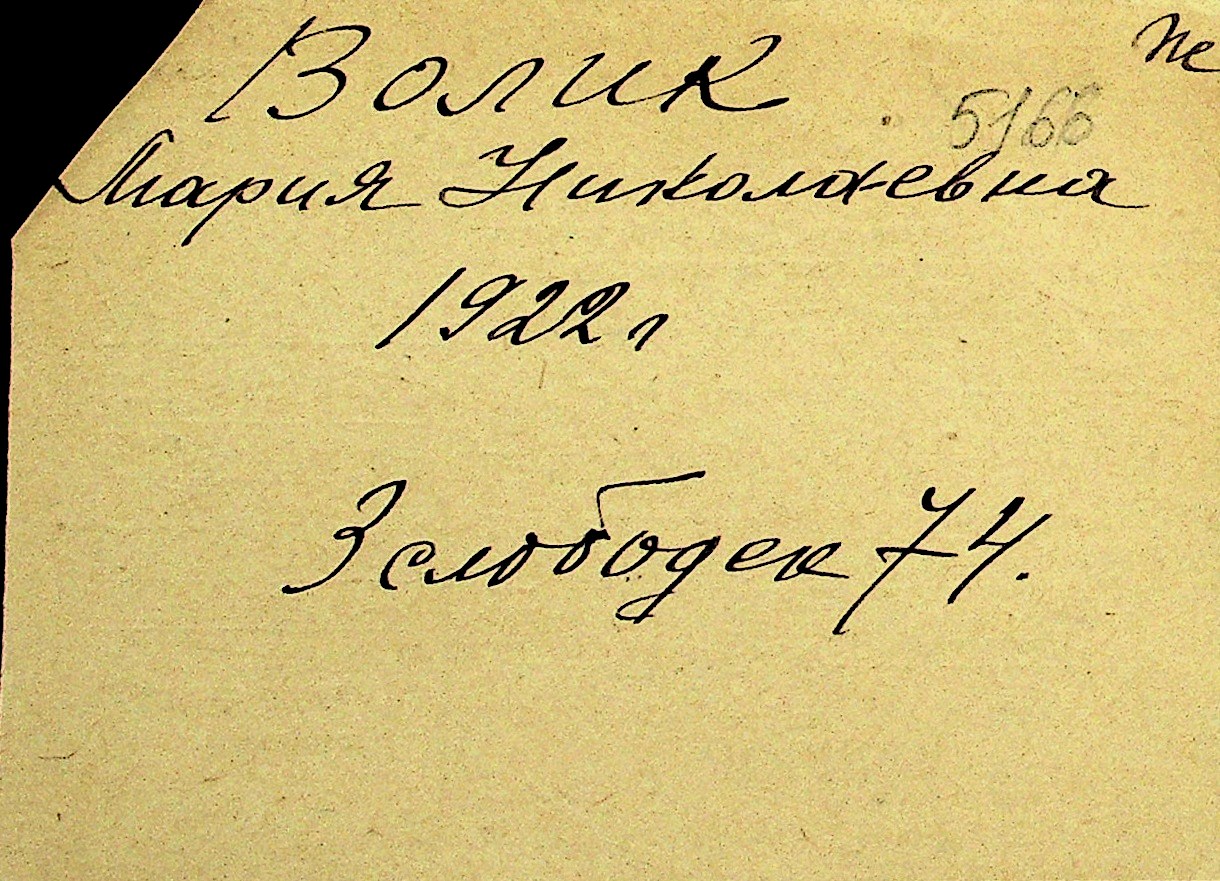 Волик
5166
Мария Николаевна
1922 г
3 слободек 74.